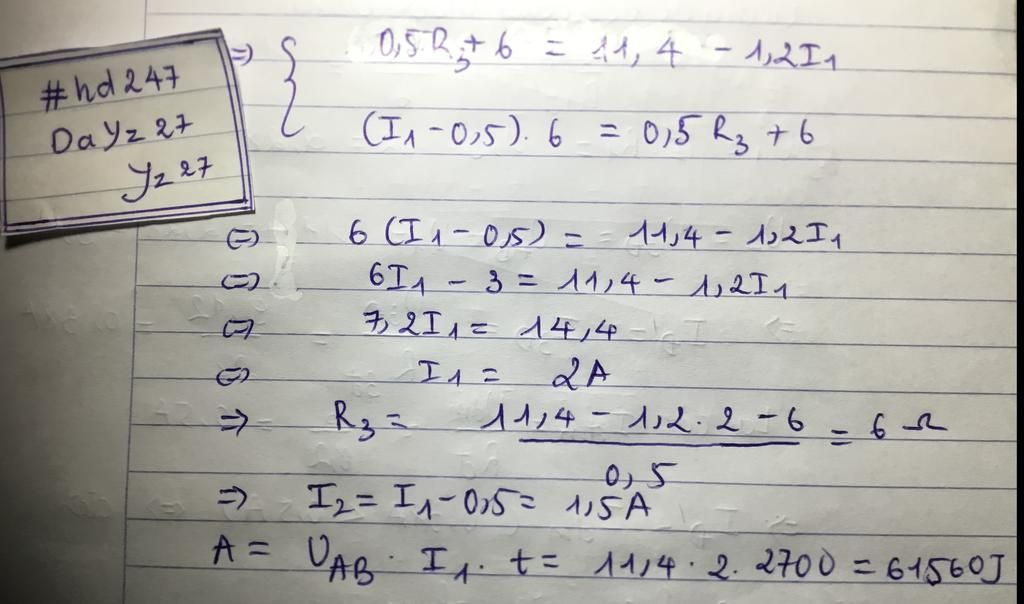 #hd247
DaYz27
Yz27
=> { 0,5R3 + 6 = 11,4 - 1,2I1
(I1 - 0,5). 6 = 0,5R3 + 6
<=> 6 (I1 - 0,5) = 11,4 - 1,2I1
<=> 6I1 - 3 = 11,4 - 1,2I1
<=> 7,2I1 = 14,4
<=> I1 = 2A
=> R3 = 11,4 - 1,2.2 - 6 = 6 Ω
0,5
=> I2 = I1 - 0,5 = 1,5A
A = UAB . I1. t = 11,4.2.2700 = 61560J